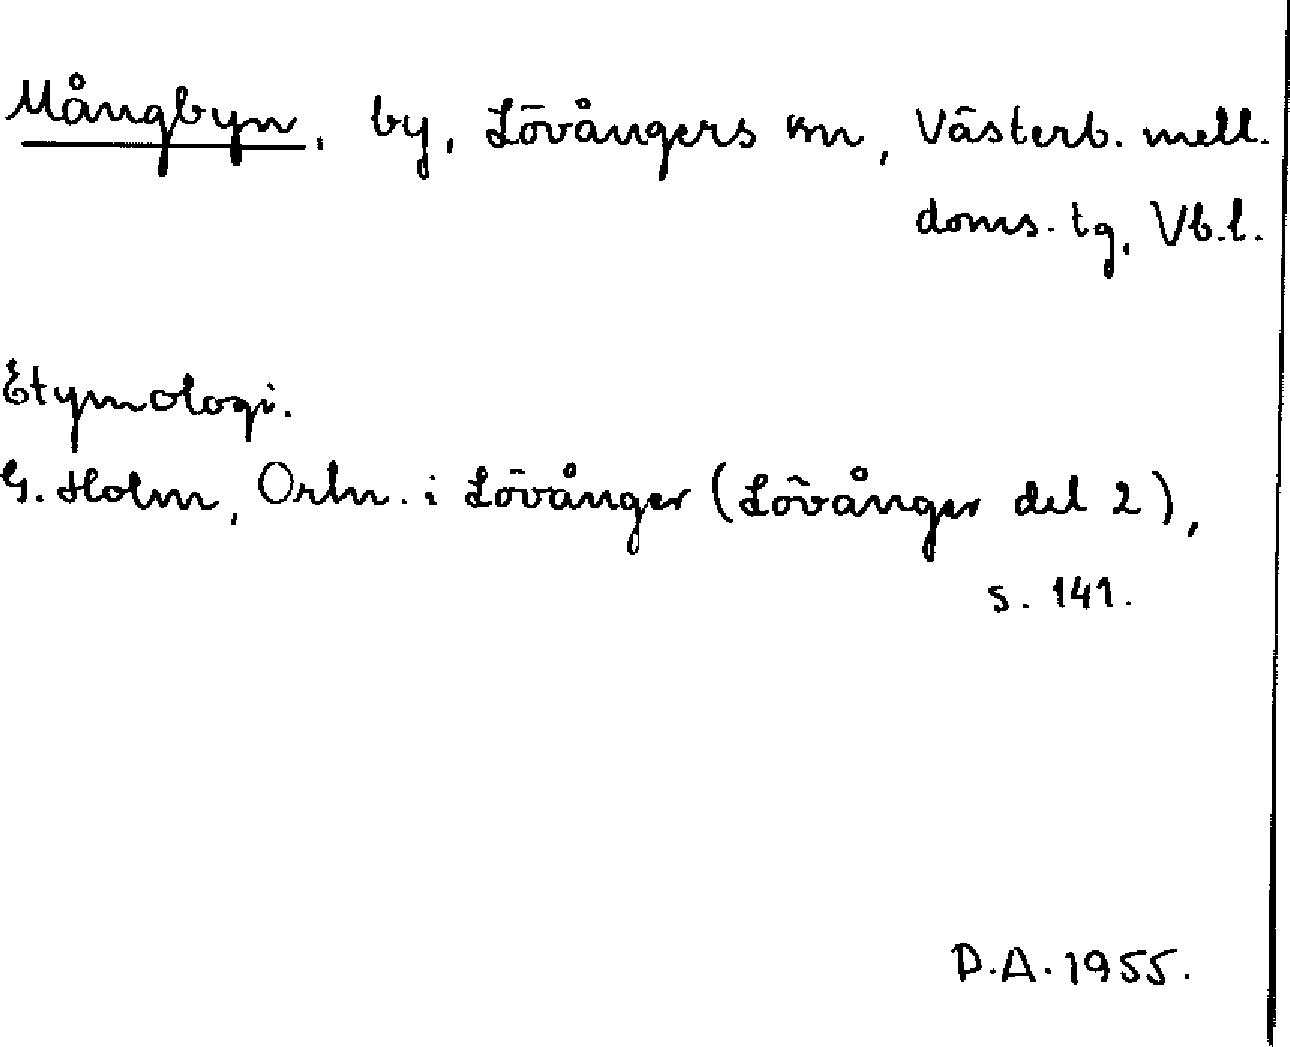 Mångbyn, by, Lövångers kn, Västerb. mell.
doms. tg, Vb.l.
Etymologi.
G. Holm, Ortn. i Lövånger (Lövånger del 2),
s. 141.
D.A. 1955.